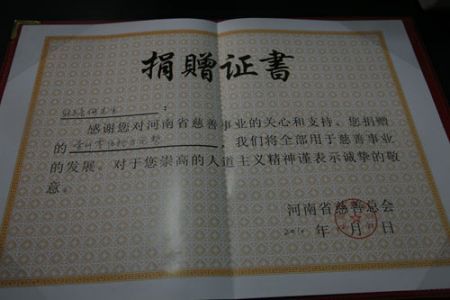 捐赠证书
：
感谢您对河南省慈善事业的关心和支持。您捐赠
的
；我们将全部用于慈善事业
的发展。对于您崇高的人道主义精神谨表示诚挚的敬
意。
河南省慈善总会
年 月 日